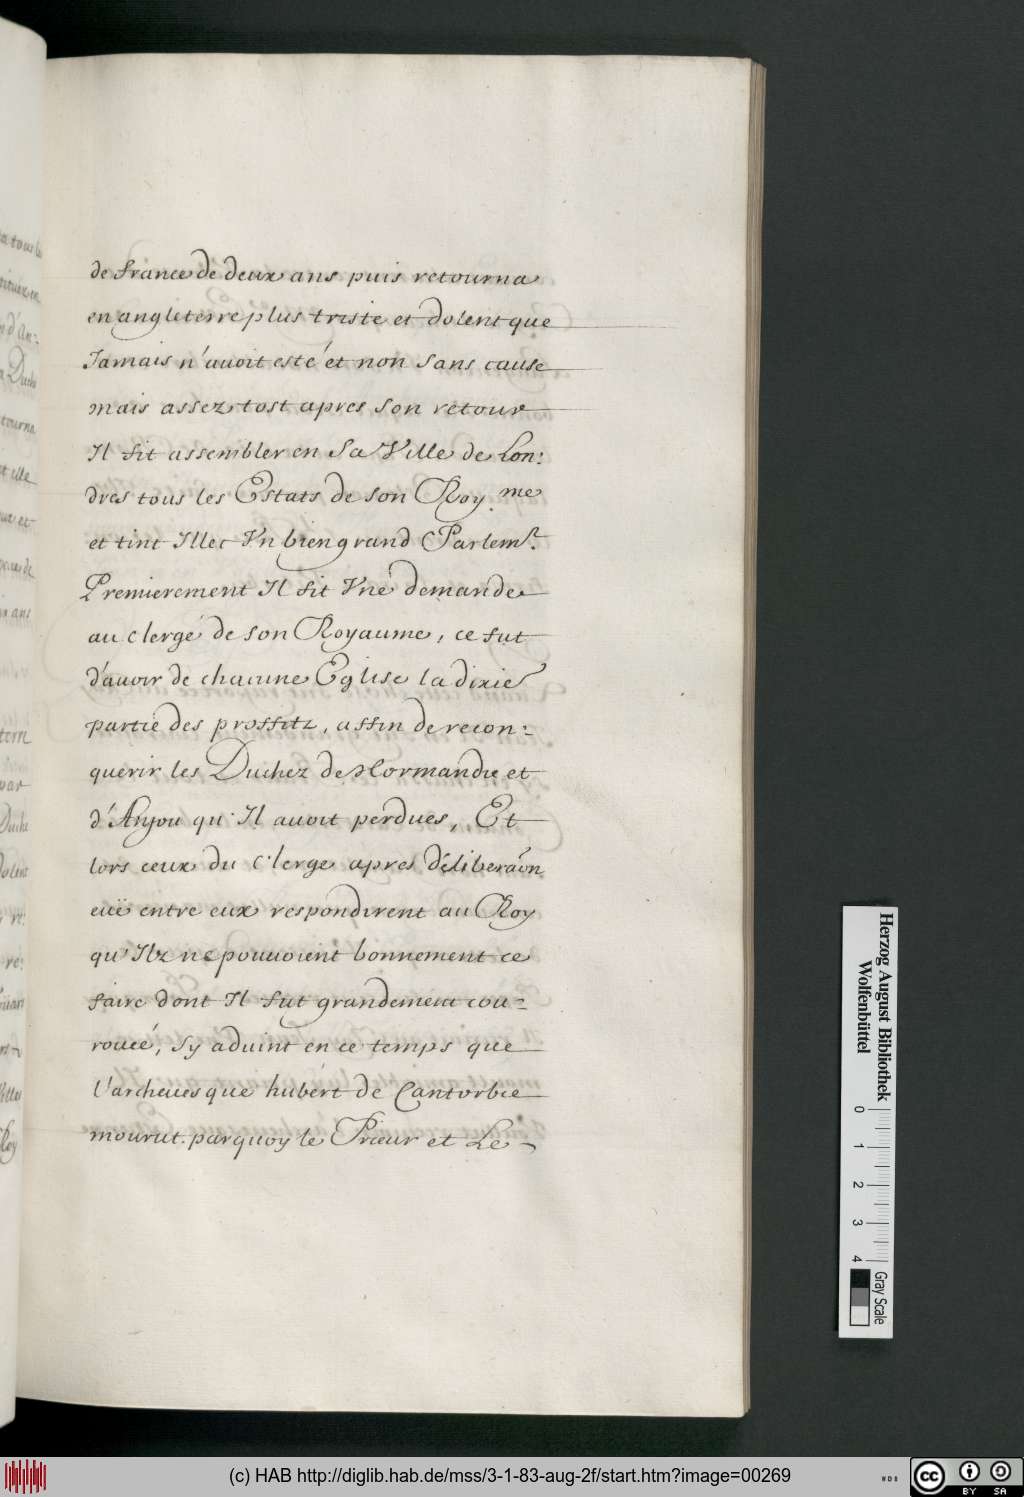 de france de deux ans puis retourna
en angleterre plus triste et dolent que
Jamais n'auoit esté et non sans cause
mais assez tost apres son retour
Il fit assembler en sa Ville de Lon:
dres tous les Estats de son Roy.me
et tint Illec Vn bien grand Parlemt.
Premierement Il fit Vne demande
au clergé de son Royaume, ce fut
d'auoir de chacune Eglise la dixie
partie des proffitz, affin de recon:
querir les Duchez de Normandie et
d'Anjou qu'Il auoit perdues, Et
lors ceux du Clerge apres déliberaõn
euë entre eux respondirent au Roy
qu'Ilz ne pouuoient bonnement ce
faire dont Il fut grandement cou-
roucé, s'y aduint en ce temps que
l'archeuesque hubert de Cantorbie
mourut. parquoy le Prieur et Le
Herzog August Bibliothek
Wolfenbüttel
0 1 2 3 4
Gray Scale
(c) HAB http://diglib.hab.de/mss/3-1-83-aug-2f/start.htm?image=00269
cc BY SA